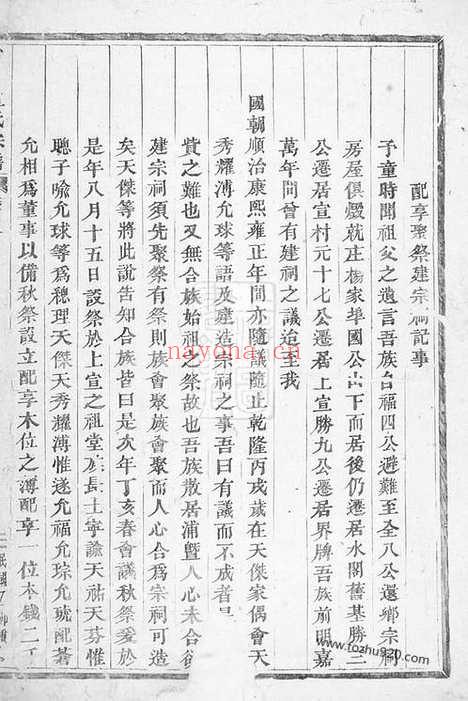 配享聖祭建宗祠記事
予童時聞祖父之遺言吾族自福四公避難至全八公還鄉宗祠
房屋俱燬就庄楊家埠國公山下而居後仍遷居水閣舊基勝三
公遷居宣村元十七公遷居上宣勝九公遷居界牌吾族前明嘉
萬年間曾有建祠之議迨至我
國朝順治康熙雍正年間亦隨議隨止乾隆丙戌歲在天傑家偶會天
秀耀溥允球等語及建造宗祠之事吾曰有議而不成者是
貲之難也又無合族始祖之祭故也吾族散居浦曁人心未合欲
建宗祠須先聚祭有祭則族會聚族會聚而人心合爲宗祠可造
矣天傑等將此說告知合族皆曰是次年丁亥春會議秋祭爰於
是年八月十五日設祭於上宣之祖堂族長士寧諭天祐天芬惟
聰子喻允球等爲總理天傑天秀耀溥惟遂允福允琮允琥配蒼
允相爲董事以備秋祭設立配享木位之溥配享一位本錢二千
氏宗譜
民國
nayona.cn
www.fozhu920.com